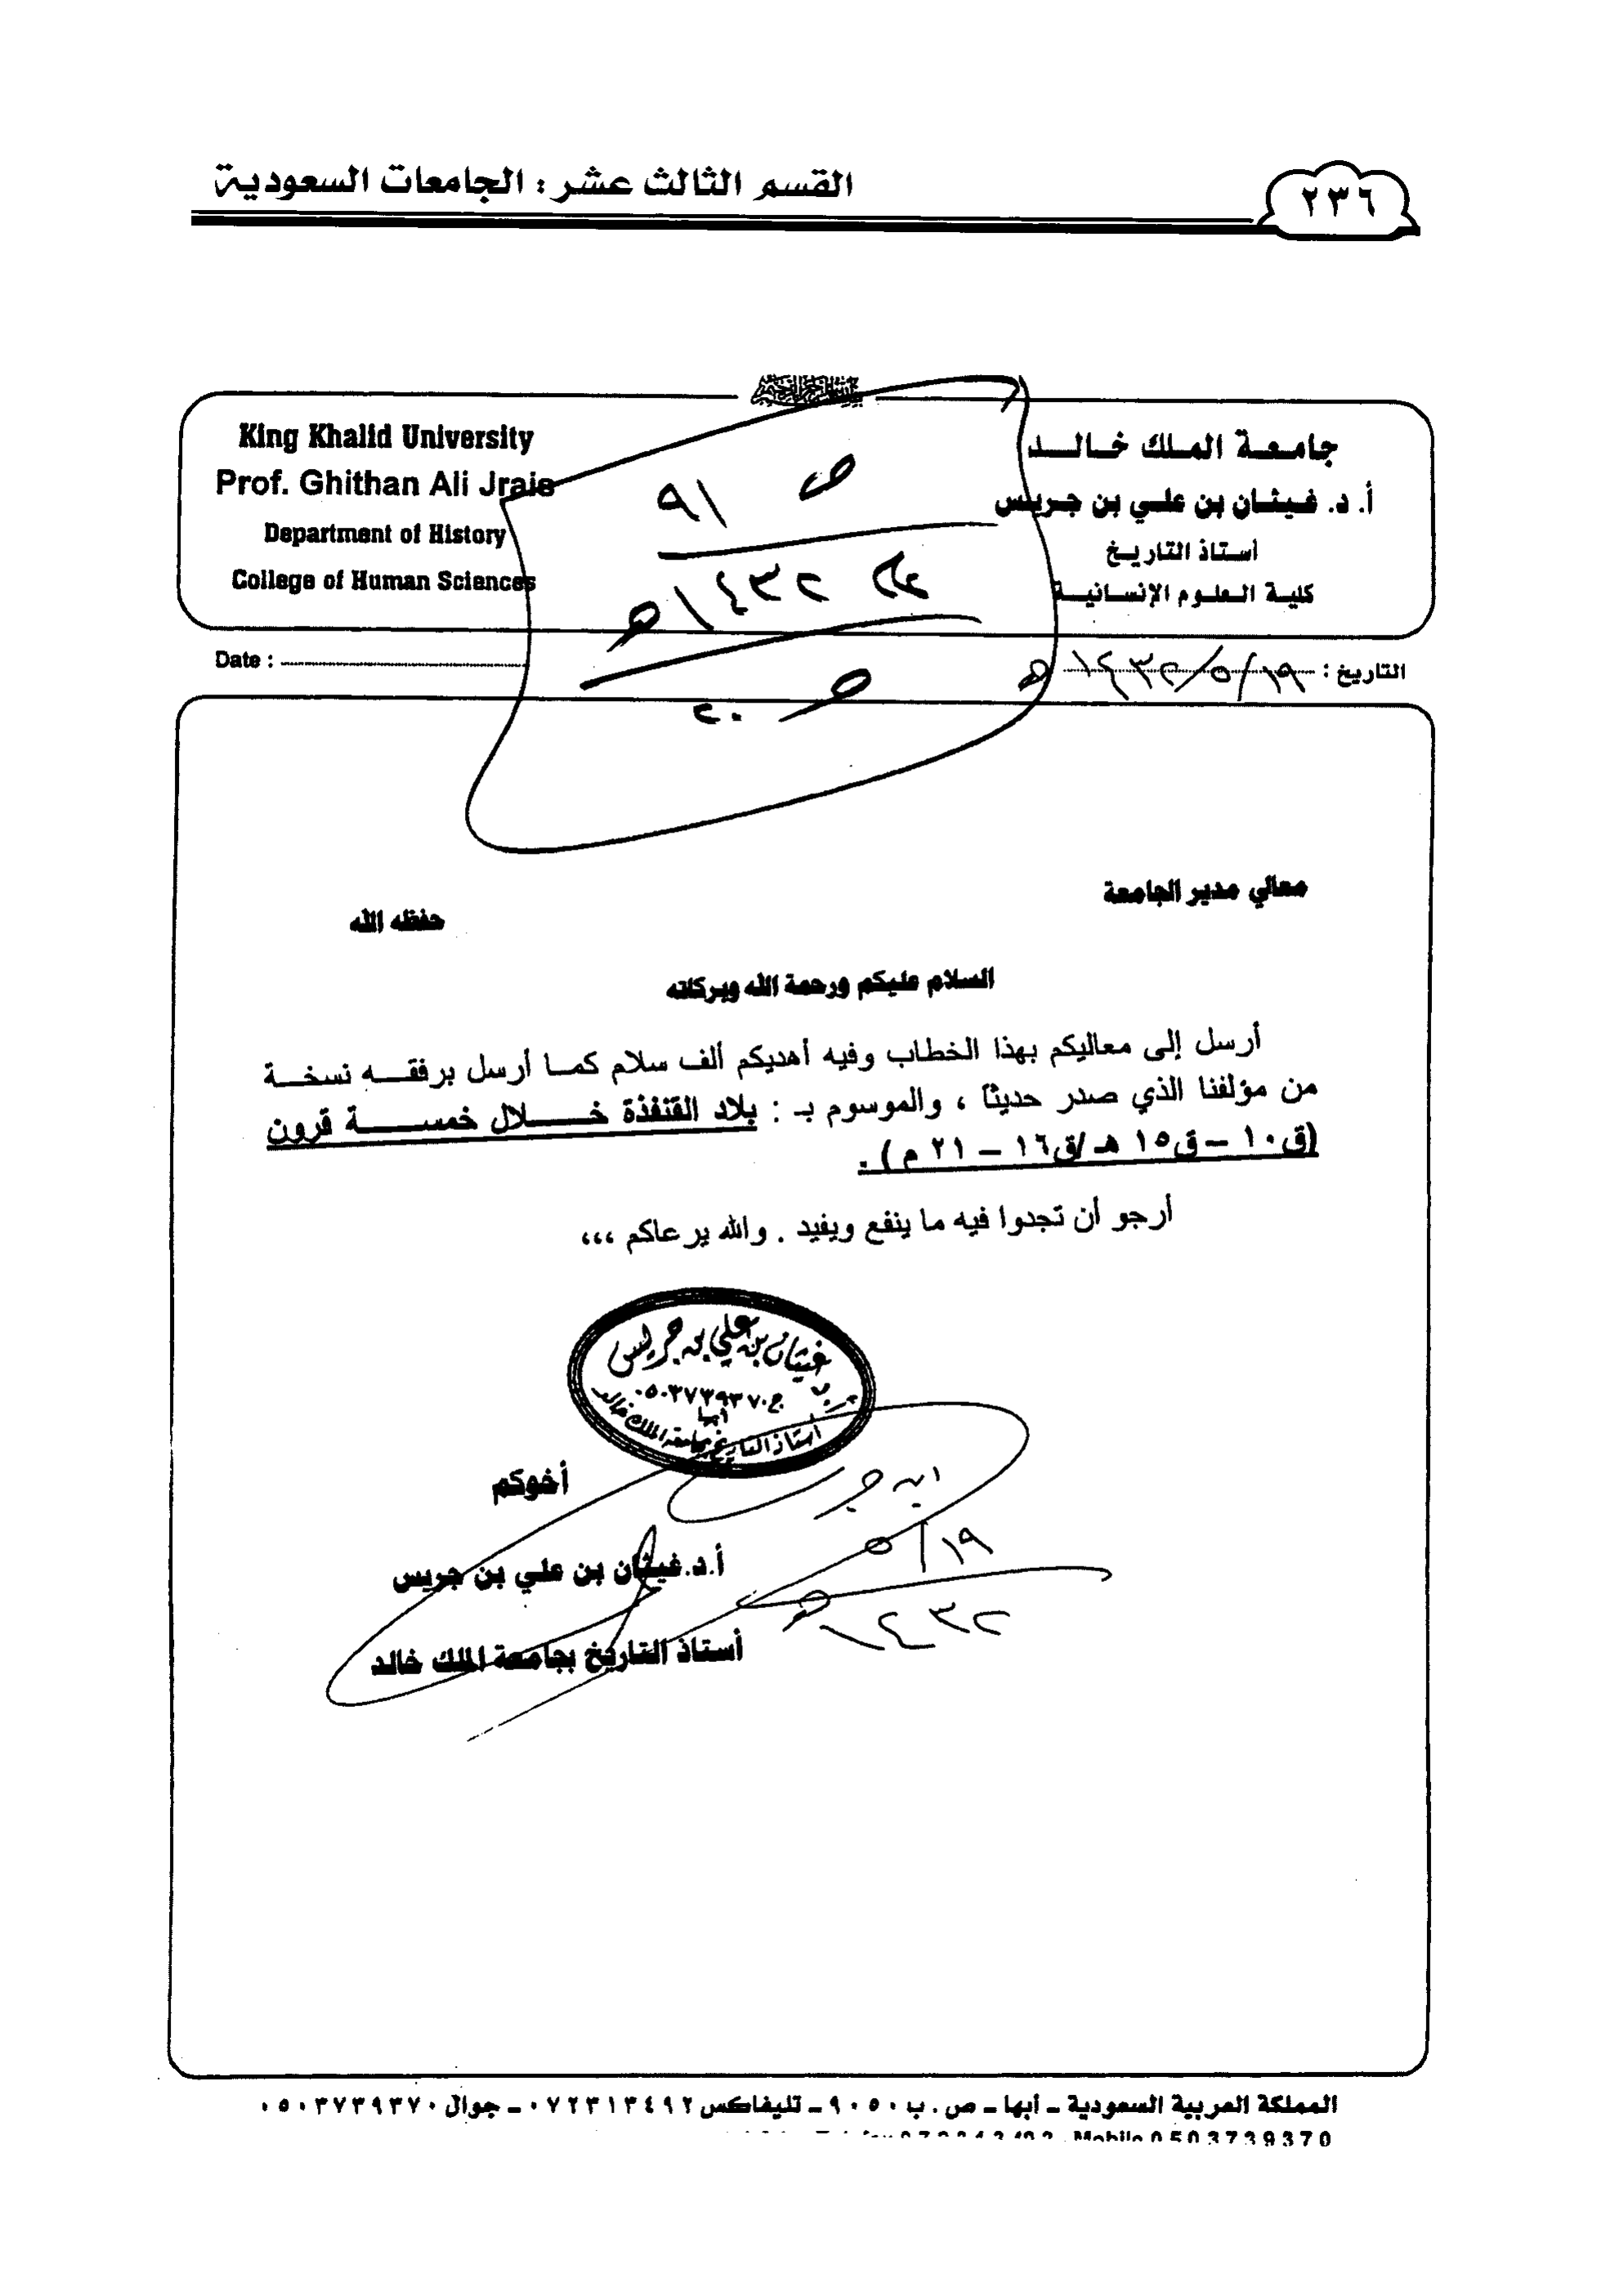 ٢٣٦
القسم الثالث عشر : الجامعات السعودية
جامعة الملك خالد
أ. د. غيثان بن علي بن جريس
أستاذ التاريخ
كلية العلوم الإنسانية
King Khalid University
Prof. Ghithan Ali Jrais
Department of History
College of Human Sciences
ص ٩١
١٤٣٢ هـ
ص ٢٠
التاريخ : ١٩/٥/١٤٣٢ هـ
Date :
معالي مدير الجامعة
حفظه الله
السلام عليكم ورحمة الله وبركاته
أرسل إلى معاليكم بهذا الخطاب وفيه أهديكم ألف سلام كما أرسل برفقه نسخة
من مؤلفنا الذي صدر حديثاً ، والموسوم بـ : بلاد القنفذة خلال خمسة قرون
(ق١٠ – ق١٥ هـ/ق١٦ – ٢١ م) .
أرجو أن تجدوا فيه ما ينفع ويفيد . والله يرعاكم ،،،
غيثان بن علي بن جريس
ج.٠٥٠٣٧٣٩٣٧٠
أبها
أستاذ التاريخ بجامعة الملك خالد
أخوكم
أ.د.غيثان بن علي بن جريس
أستاذ التاريخ بجامعة الملك خالد
١٩/٥
١٤٣٢ هـ
المملكة العربية السعودية – أبها – ص . ب ٩٠٥٠ – تليفاكس ٠٧٢٣١٣٤٩٢ – جوال ٠٥٠٣٧٣٩٣٧٠
Mobile 0503739370